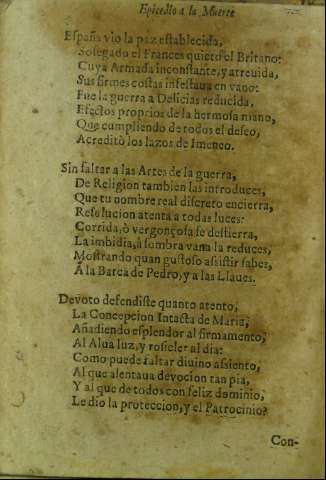 Epicedio a la Muerte
España vio la paz establecida,
Sosegado el Frances quieto el Britano:
Cuya Armada inconstante, y atreuida,
Sus firmes costas infestaua en vano:
Fue la guerra a Delicias reducida,
Efectos proprios de la hermosa mano,
Que cumpliendo de todos el deseo,
Acreditò los lazos de Imeneo.
Sin faltar a las Artes de la guerra,
De Religion tambien las introduces,
Que tu nombre real discreto encierra,
Resolucion atenta a todas luces:
Corrida, ò vergonçosa se destierra,
La imbidia, à sombra vana la reduces,
Mostrando quan gustoso assistir sabes,
A la Barca de Pedro, y a las Llaues.
Deuoto defendiste quanto atento,
La Concepcion Intacta de Maria,
Añadiendo esplendor al firmamento,
Al Alua luz, y rosicler al dia:
Como puede faltar diuino assiento,
Al que alentaua deuocion tan pia,
Y al que de todos con feliz dominio,
Le dio la proteccion, y el Patrocinio?
Con-